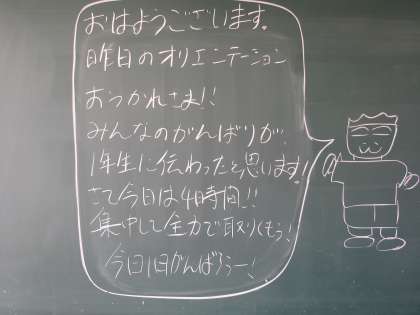 おはようございます。
昨日のオリエンテーション
おつかれさま!!
みんなのがんばりが、
1年生に伝わったと思います!
さて今日は4時間!!
集中して全力で取りくもう!
今日1日がんばろうー!